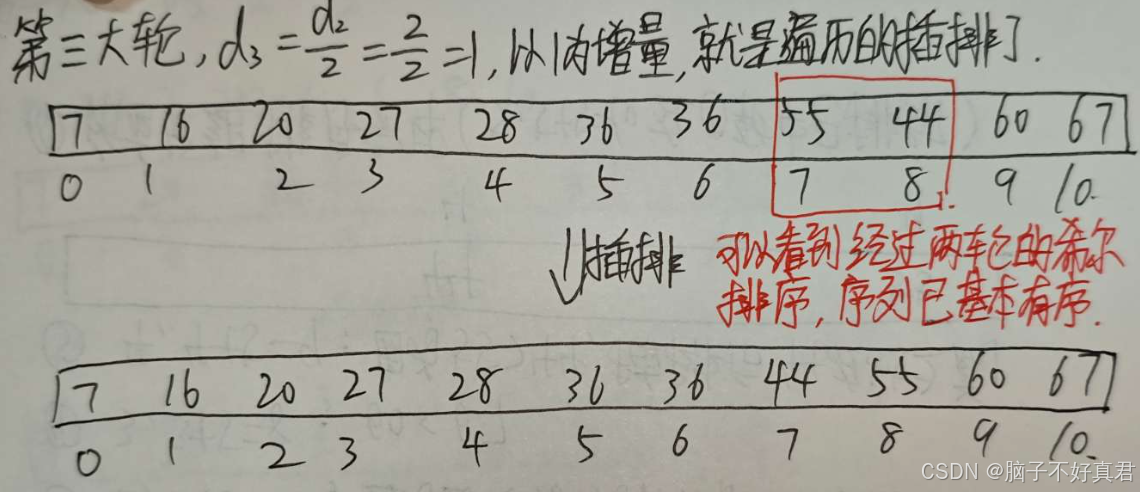 第三大轮,d3=d2/2=2/2=1,以1为增量,就是遍历的插排了.
7 16 20 27 28 36 36 55 44 60 67
0 1 2 3 4 5 6 7 8 9 10.
↓插排
可以看到经过两轮的希尔
排序,序列已基本有序.
7 16 20 27 28 36 36 44 55 60 67
0 1 2 3 4 5 6 7 8 9 10.
CSDN @脑子不好真君